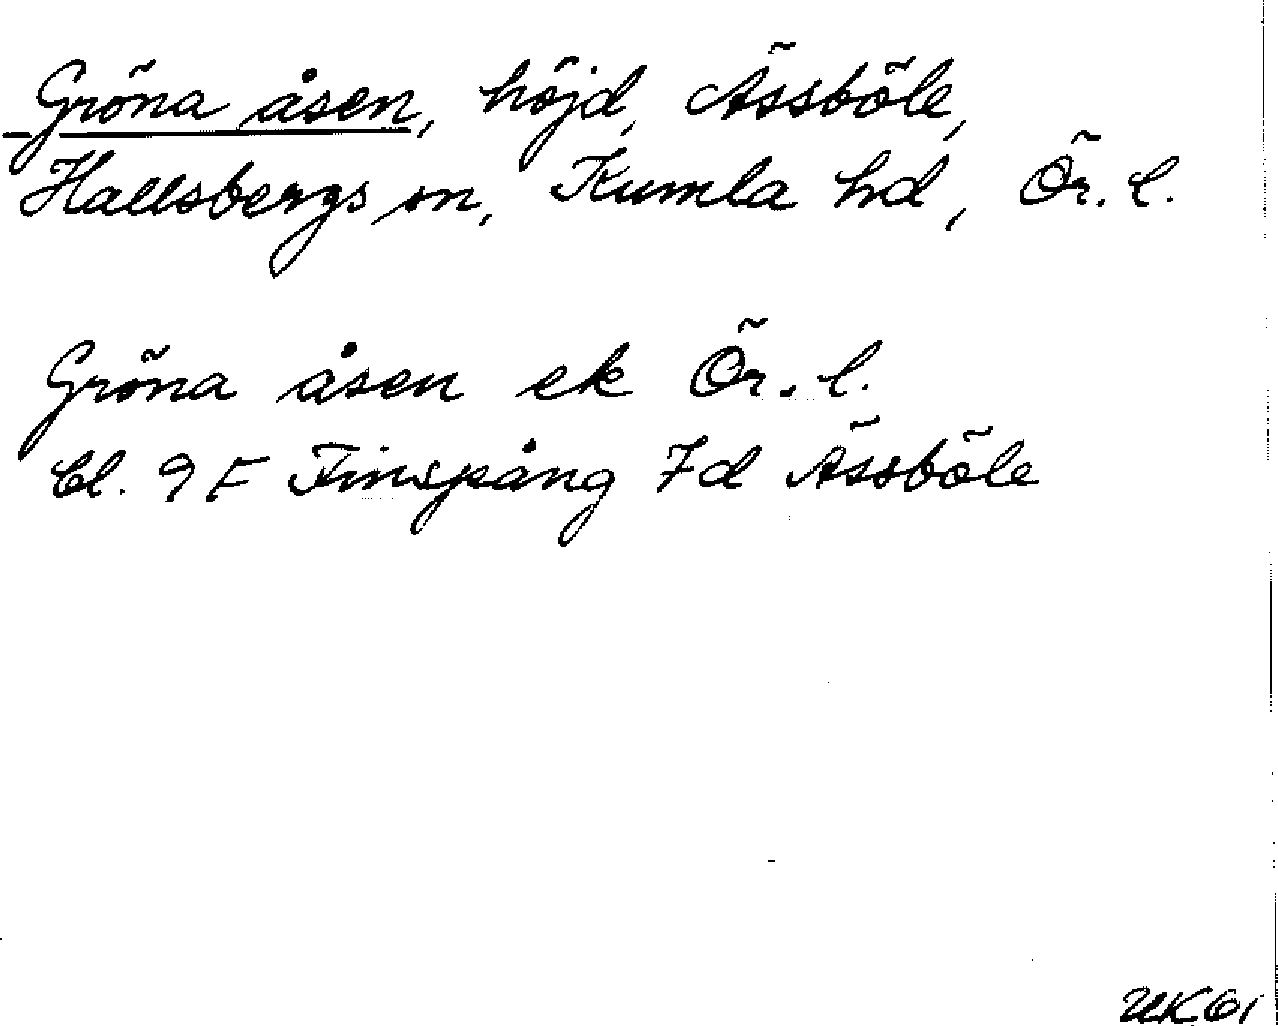 Gröna åsen, höjd, Ässböle,
Hallsbergs sn, Kumla hd, Ör. l.
Gröna åsen ek Ör. l.
Bl. 9F Finspång 7d Ässböle
UK61